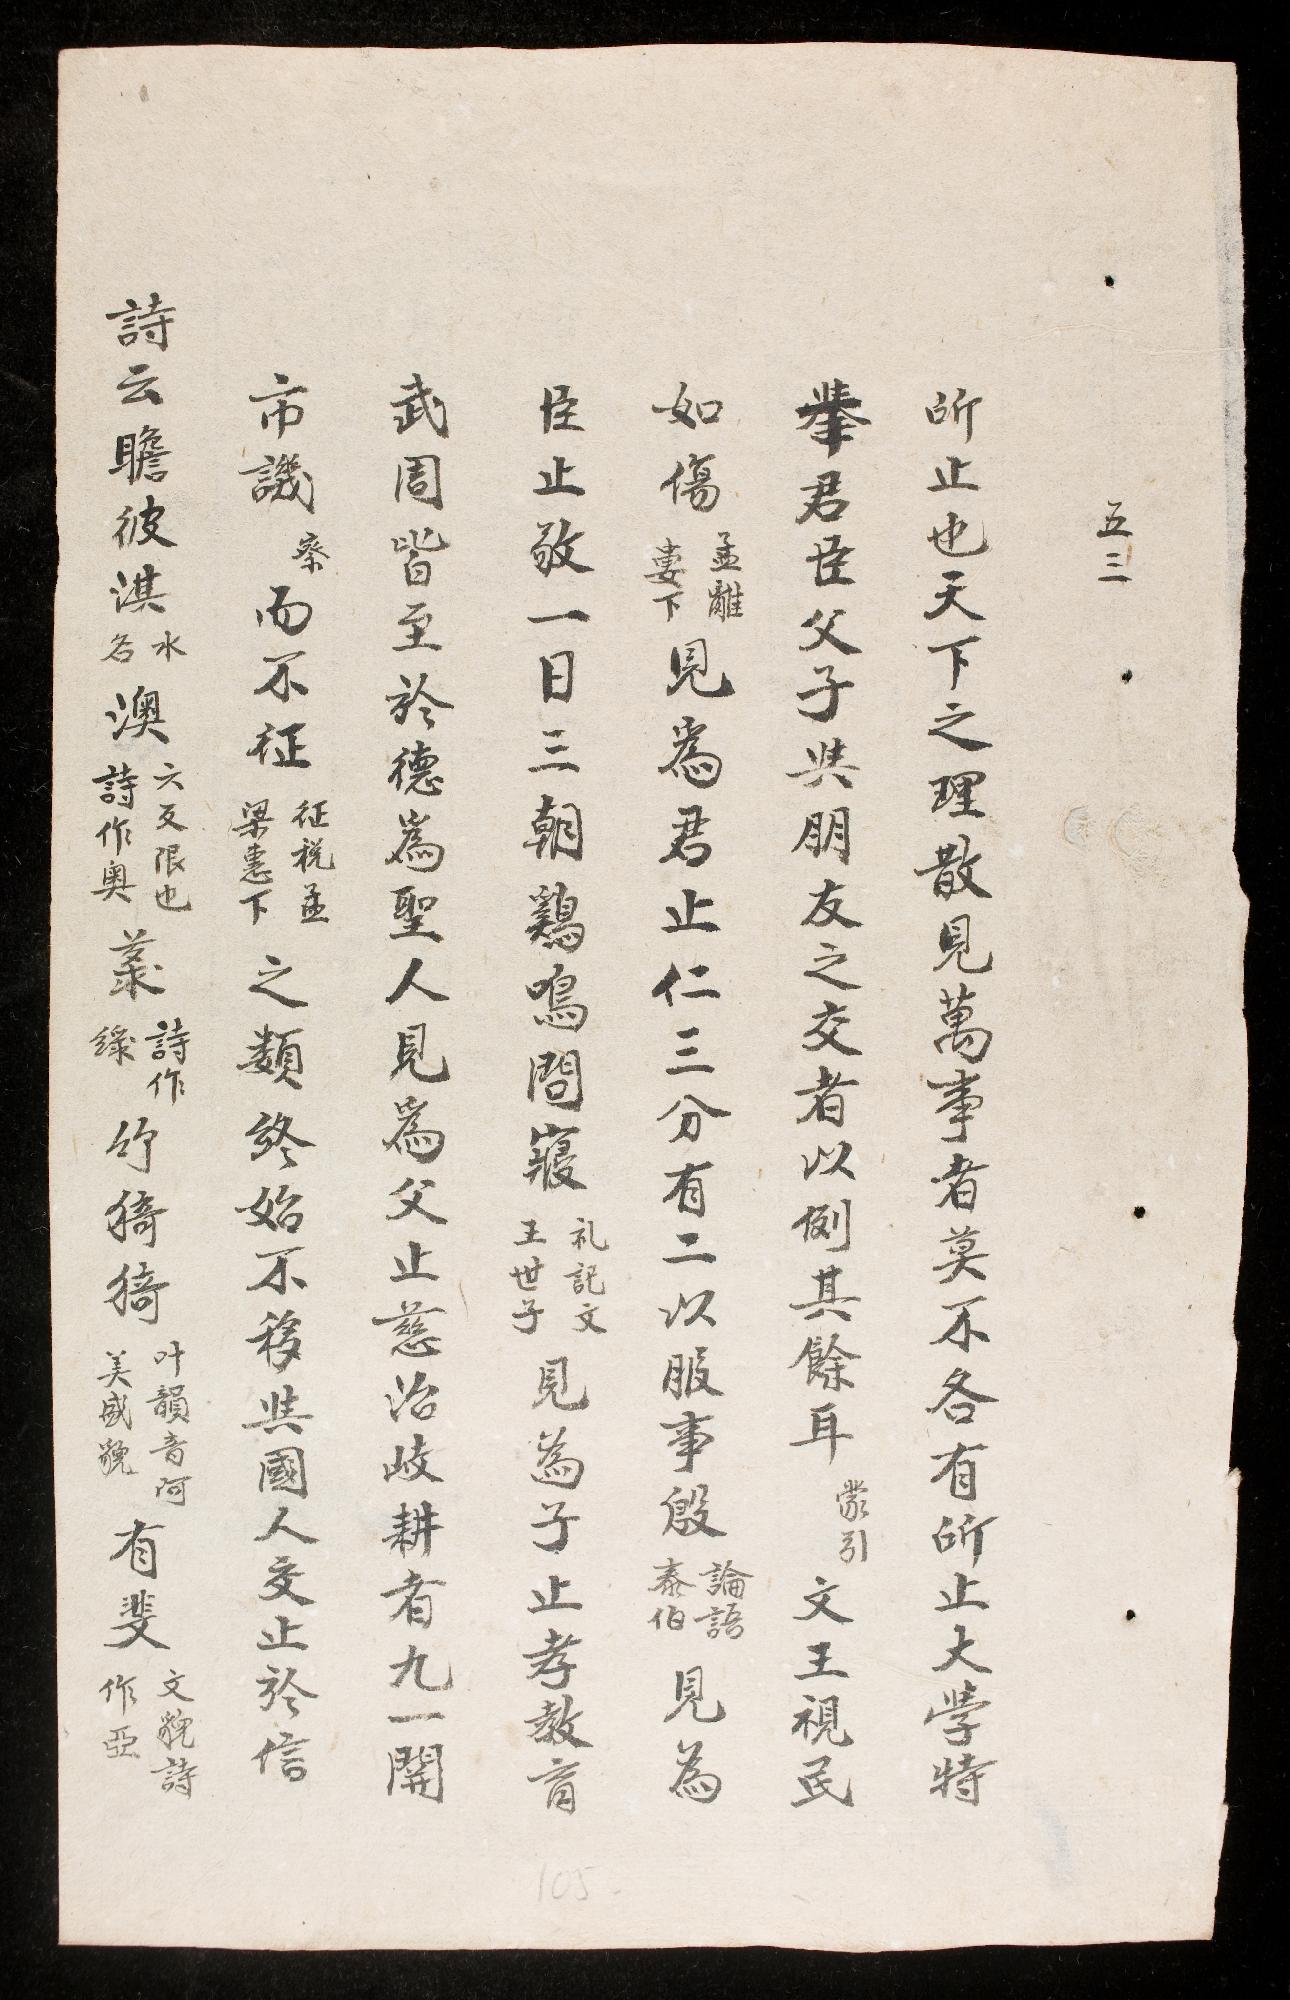 五三
所止也天下之理散見萬事者莫不各有所止大學特
舉君臣父子與朋友之交者以例其餘耳蒙引文王視民
如傷孟離婁下見為君止仁三分有二以服事殷論語泰伯見為
臣止敬一日三朝鷄鳴問寢礼記文王世子見為子止孝教育
武周皆至於德為聖人見為父止慈治岐耕者九一關
市譏察而不征征税孟梁惠下之類終始不移與國人交止於信
詩云瞻彼淇水名澳六反隈也詩作奥菉詩作綠竹猗猗叶韻音阿美盛貌有斐文貌詩作亞
105